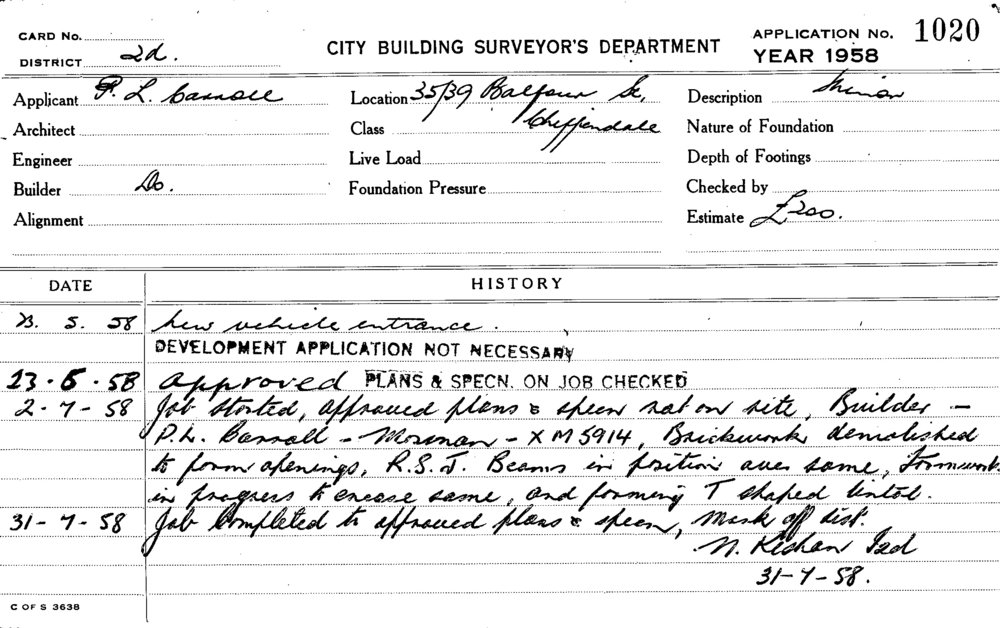 CARD No.
DISTRICT 2d.
CITY BUILDING SURVEYOR'S DEPARTMENT
APPLICATION No. 1020
YEAR 1958
Applicant P. L. Carroll
Location 35/39 Balfour St,
Description Minor
Architect
Class Chippendale
Nature of Foundation
Engineer
Live Load
Depth of Footings
Builder Do.
Foundation Pressure
Checked by
Alignment
Estimate £200.
DATE HISTORY
5. 58 New vehicle entrance.
DEVELOPMENT APPLICATION NOT NECESSARY
approved PLANS & SPECN. ON JOB CHECKED
2-7-58 Job started, approved plans & specn not on site, Builder -
P.L. Carroll - Mosman - XM5914, Brickwork demolished
to form openings, R.S.J. Beams in position over same, Formwork
in progress to encase same, and forming T shaped lintol.
31-7-58 Job Completed to approved plans & specn, Mark off list.
N.
31-7-58.
C OF S 3638